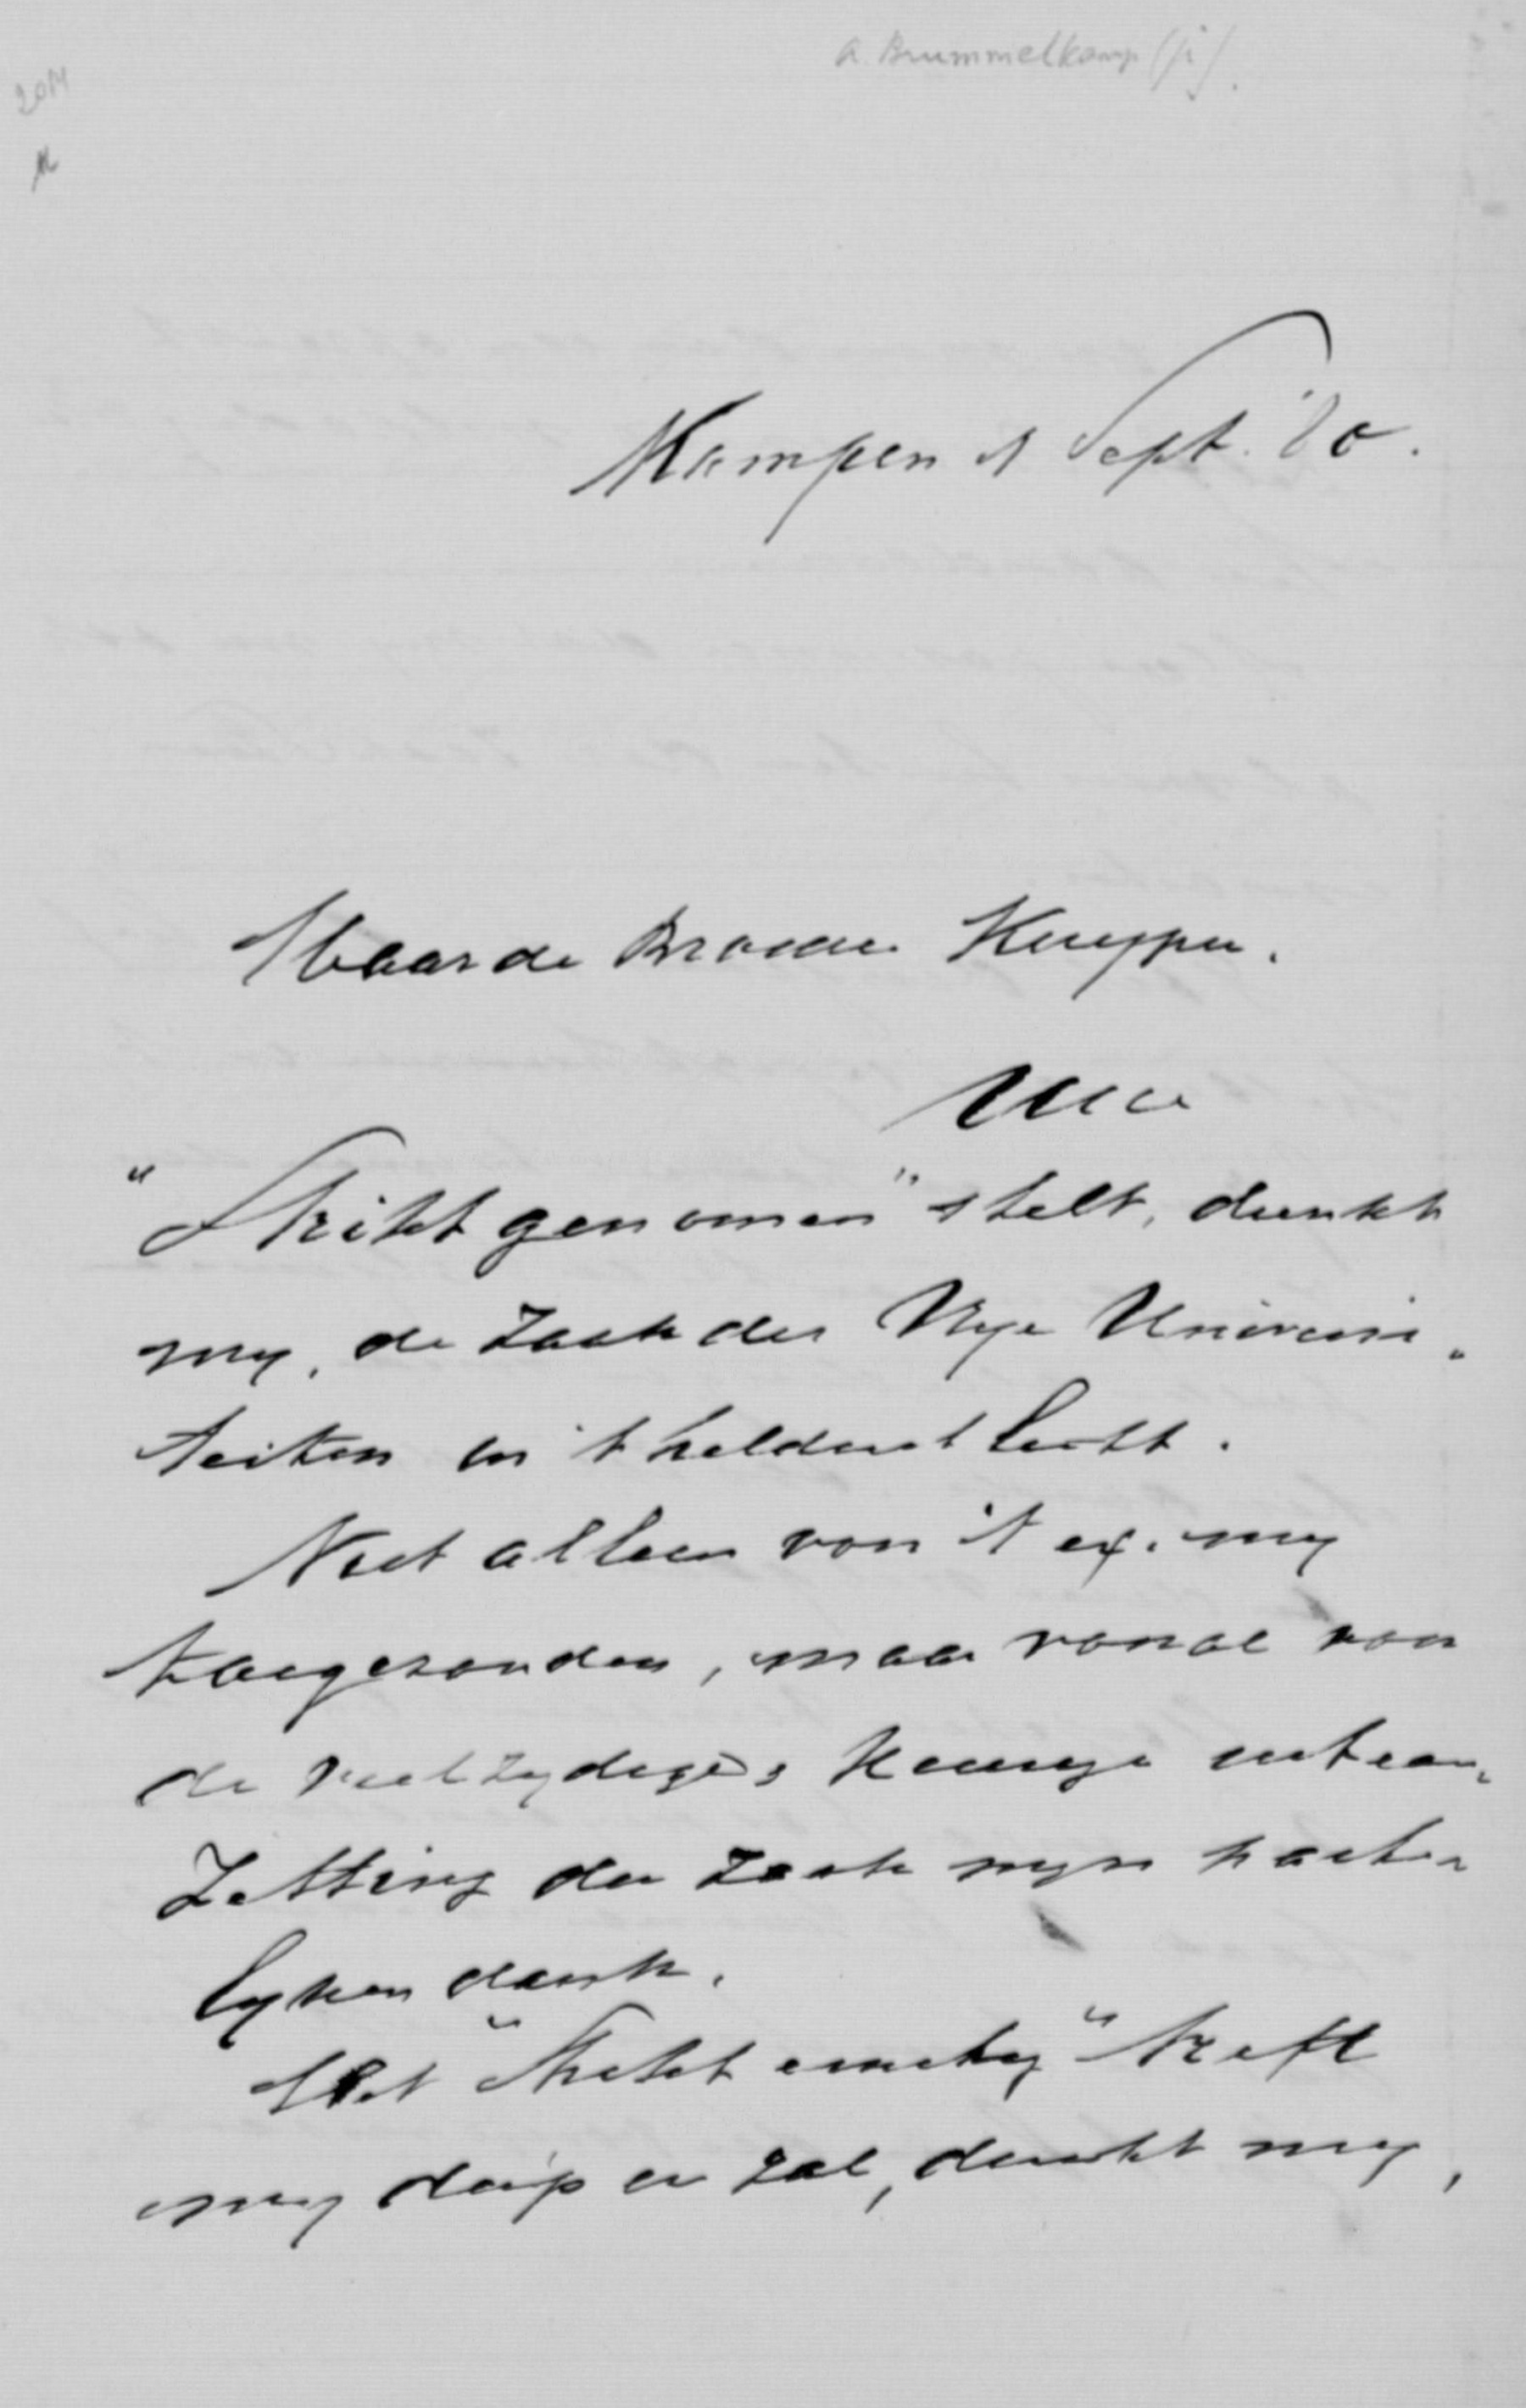 A. Brummelkamp (jr).
2014
Kampen 1 Sept. '80.
Waarde Broeder Kuyper.
Uwe
"Strikt genomen" stelt, dunkt
my, de zaak der Vrye Universi„
teiten in 't helderst licht.
Niet alleen voor 't ex. my
toegezonden, maar vooral voor
de veelzydige, keurige uiteen„
zetting der zaak myn harte„
lyken dank.
Het "Strikt eenerlei" treft
my diep en zal, dunkt my,